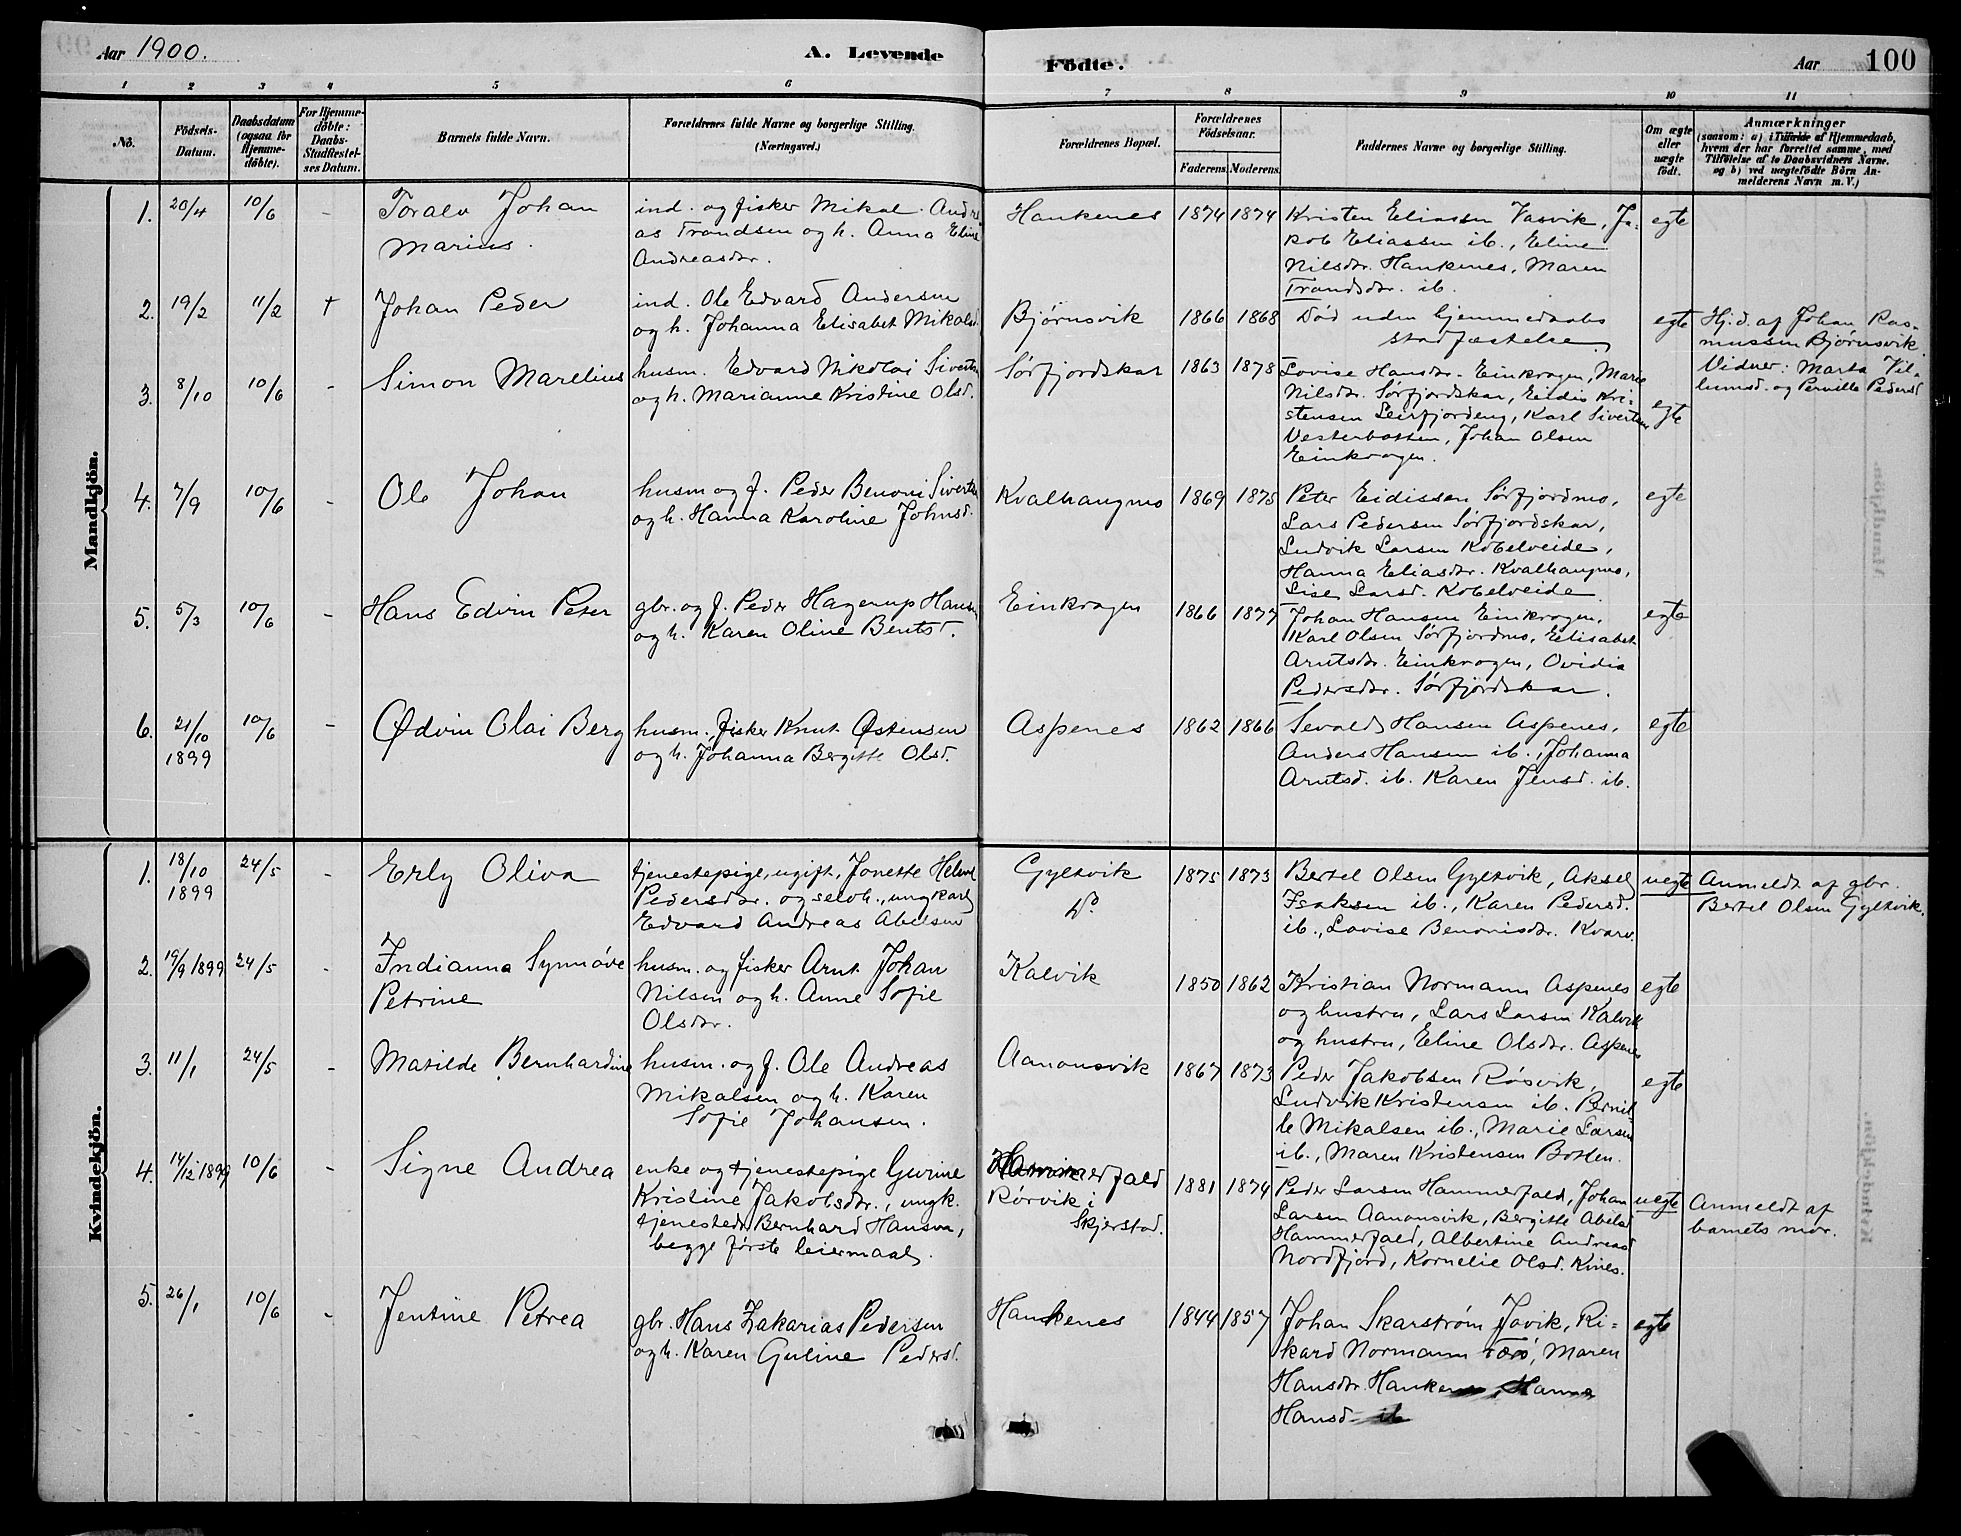 Aar 1900.
A. Levende
Födte.
Aar
100
1 2 3 4 5 6 7 8 9 10 11
No.
Födsels-
Datum.
Daabsdatum
(ogsaa for
Hjemme-
döbte).
For Hjemme-
döbte:
Daabs-
Stadfæstel-
ses Datum.
Barnets fulde Navn.
Forældrenes fulde Navne og borgerlige Stilling.
(Næringsvei.)
Forældrenes Bopæl.
Forældrenes
Födselsaar.
Faderens. Moderens.
Faddernes Navne og borgerlige Stilling.
Om ægte
eller
uægte
födt.
Anmærkninger
(saasom: a) i Tilfælde af Hjemmedaab,
hvem der har forrettet samme, med
Tilföielse af to Daabsvidners Navne.
og b) ved uægtefödte Börn An-
melderens Navn m. V.)
Mandkjön.
1. 20/4 10/6 -
Toralv Johan
Marius.
ind. og fisker Mikal Andre
as Trondsen og h. Anna Eline
Andreasdr.
Hankenes 1874 1874
Kristen Eliassen Vasvik, Ja-
kob Eliassen ib., Eline
Nilsdr. Hankenes, Maren
Trondsdr. ib.
egte
2. 19/2 11/2 +
Johan Peder
ind. Ole Edvard Andersen
og h. Johanna Elisabet Mikalsd.
Bjørnsvik 1866 1868
Død uden hjemmedaabs
stadfæstelse
egte
Hj.d. af Johan Ras-
mussen Bjørnsvik
Vidner: Marta Vil-
lumsd. og Pernille Pedersd
3. 8/10 10/6 -
Simon Marelius
husm. Edvard Nikolai Sivertsen
og h. Marianne Kristine Olsd.
Sørfjordskar 1863 1878
Lovise Hansdr. Einkrogen, Marie
Nilsdr. Sørfjordskar, Eidis Kri-
stensen Leirfjordeng, Karl Sivertsen
Vesterbotten, Johan Olsen
Einkrogen.
egte
4. 7/9 10/6 -
Ole Johan
husm og f. Peder Benoni Sivertsen
og h. Hanna Karoline Johnsd.
Kvalhaugmo 1869 1875
Peter Eidissen Sørfjordmo,
Lars Pedersen Sørfjordskar,
Ludvik Larsen Kobelveide,
Hanna Eliasdr. Kvalhaugmo,
Lise Larsd. Kobelveide
egte
5. 5/3 10/6 -
Hans Edvin Peter
gbr. og f. Peder Hagerup Hansen
og h. Karen Oline Bentsd.
Einkrogen 1866 1877
Johan Hansen Einkrogen,
Karl Olsen Sørfjordmo, Elisabet
Arntsdr. Einkrogen, Ovidia
Pedersdr. Sørfjordskar.
egte
6. 21/10 1899 10/6 -
Ødvin Olai Berg
husm. fisker Knut Østensen
og h. Johanna Bergitte Olsd.
Aspenes 1862 1866
Sevald Hansen Aspenes,
Anders Hansen ib., Johanna
Arntsd. ib. Karen Jensd. ib.
egte
Kvindekjön.
1. 18/10 1899 24/5 -
Erly Oliva
tjenestepige, ugift, Jonette Helene
Pedersdr. og selvh., ungkarl
Edvard Andreas Abelsen
Gyltvik
do
1875 1873
Bertel Olsen Gyltvik, Aksel
Isaksen ib., Karen Pedersd.
ib., Lovise Benonisdr. Kvarv.
uegte
Anmeldt af gbr.
Bertel Olsen Gyltvik.
2. 19/9 1899 24/5 -
Indianna Synnøve
Petrine
husm. og fisker Arnt Johan
Nilsen og h. Anne Sofie
Olsdr.
Kalvik 1850 1862
Kristian Normann Aspenes
og hustru, Lars Larsen Kalvik
og hustru, Eline Olsdr. Aspenes
egte
3. 11/1 24/5 -
Matilde Bernhardine
husm. og f. Ole Andreas
Mikalsen og h. Karen
Sofie Johansen.
Aanonsvik 1867 1873
Peder Jakobsen Røsvik,
Ludvik Kristensen ib. Pernil-
le Mikalsen ib., Marie Larsen
ib., Maren Kristensen Botten.
egte
4. 14/12 1899 10/6 -
Signe Andrea
enke og tjenestepige Gurine
Kristine Jakobsdr., ungk.
tjenestedr. Bernhard Hansen,
begge første leiermaal.
Hammerfald
Rørvik i
Skjerstad.
1881 1874
Peder Larsen Hammerfald, Johan
Larsen Aanonsvik, Bergitte Abelsd
Hammerfald, Albertine Andreasd
Nordfjord, Kornelie Olsd. Kines.
uegte
Anmeldt af
barnets mor.
5. 26/1 10/6 -
Jentine Petrea
gbr. Hans Zakarias Pedersen
og h. Karen Guline Pedersd.
Hankenes 1844 1857
Johan Skarstrøm Javik, Ri-
kard Normann Tørö, Maren
Hansdr. Hankenes, Hanna
Hansd. ib
egte